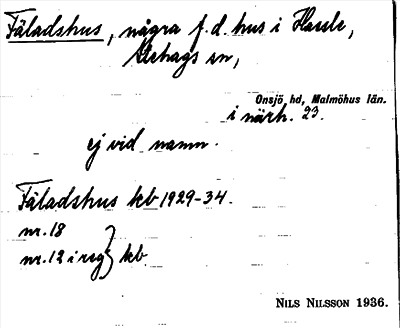 Fäladshus, några f.d. hus i Hassle,
Akehags sn,
Onsjö hd, Malmöhus län.
i närh. 23.
ej vid namn.
Fäladshus kb 1929-34.
nr. 18
nr. 12 i rsg } kb.
NILS NILSSON 1936.